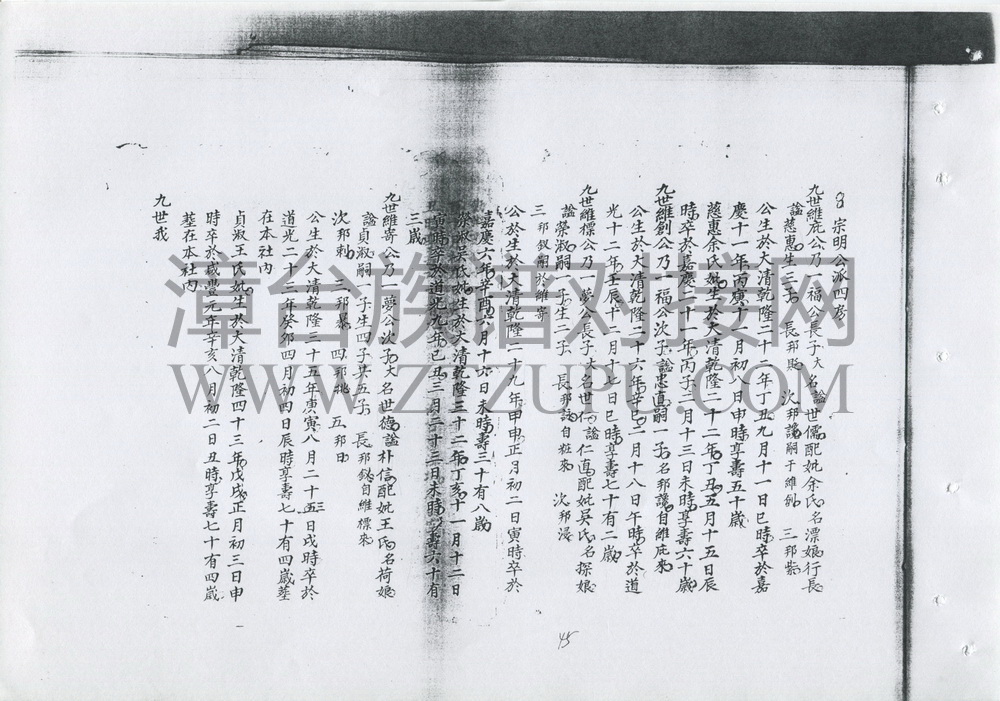 8 宗明公派四房
九世維庇公乃一福公長子大名諡世儒配妣余氏名漂娘行長
諡慈惠生三子 長邦 次邦讓嗣于維創 三邦紫
公生於大清乾隆二十二年丁丑九月十一日巳時卒於嘉
慶十一年丙寅十一月初八日申時享壽五十歲
慈惠余氏妣生於大清乾隆二十二年丁丑五月十五日辰
時卒於嘉慶二十一年丙子二月十三日未時享壽六十歲
九世維創公乃一福公次子諡忠直嗣一子名邦讓自維庇來
公生於大清乾隆二十六年辛巳二月十八日午時卒於道
光十二年壬辰十二月十七日巳時享壽七十有二歲
九世維標公乃一夢公長子大名世仁諡仁直配妣吳氏名探娘
諡榮淑嗣一子生二子 長邦 自粧來 次邦浸
三邦釵嗣於維寄
公於生於大清乾隆二十九年甲申正月初二日寅時卒於
嘉慶六年辛酉六月十六日未時壽三十有八歲
榮淑吳氏妣生於大清乾隆三十二年丁亥十一月十二日
時卒於道光九年己丑三月二十三日未時享壽六十有
三歲
九世維寄公乃一夢公次子大名世德諡朴信配妣王氏名荷娘
諡貞淑嗣一子生四子共五子 長邦釵自維標來
次邦剌 三邦暴 四邦桃 五邦日
公生於大清乾隆三十五年庚寅八月二十五日戌時卒於
道光二十三年癸卯四月初四日辰時享壽七十有四歲塟
在本社內
貞淑王氏妣生於大清乾隆四十三年戊戌正月初三日申
時卒於咸豐元年辛亥八月初二日丑時享壽七十有四歲
塟在本社內
九世我
45
漳台族谱对接网
WWW.ZZZUPU.COM